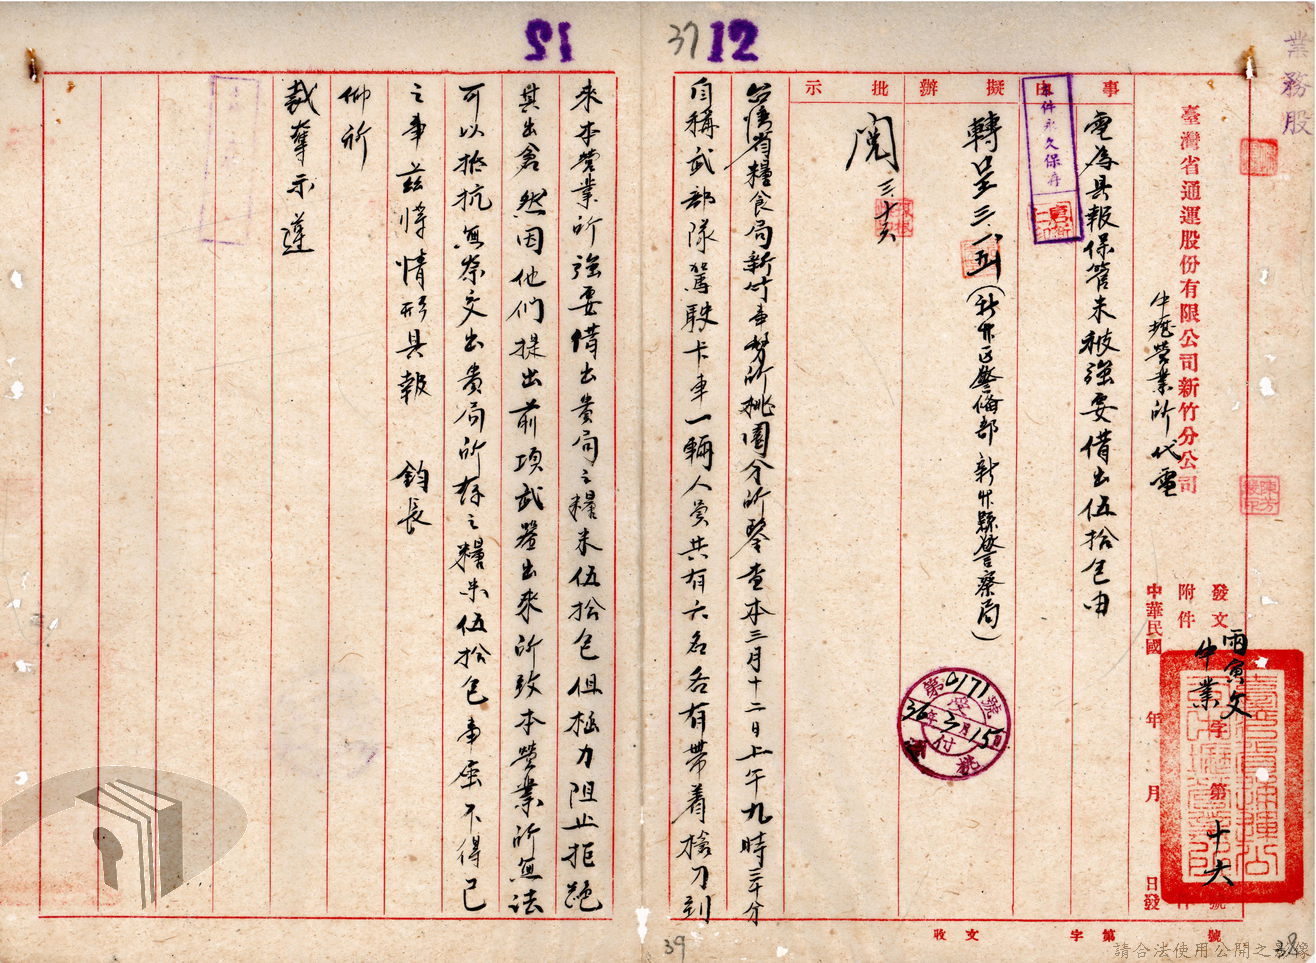 業務股
臺灣省通運股份有限公司新竹分公司
中壢營業所代電
發文
附件
中華民國 年 月 日發
雨寅文
中業
字第十六號
事由
電為具報保管米被強要借出伍拾包由
本件永久保存
擬辦
轉呈三、
(新竹區警備部 新竹縣警察局)
批示
閱
三、十六
第0171號
36年3月15日
付
桃
37 12
12
台灣省糧食局新竹事務所桃園分所鑒查本三月十二日上午九時三十分
自稱武部隊駕駛卡車一輛人員共有六名各有帶着槍刀到
來本營業所強要借出貴局之糧米伍拾包但極力阻止拒絕
其出倉然因他們提出前項武器出來所致本營業所無法
可以抵抗無奈交出貴局所存之糧米伍拾包事屈不得已
之事茲將情形具報 鈞長
仰祈
裁奪示遵
收文 字第 號
39
38
請合法使用公開之影像